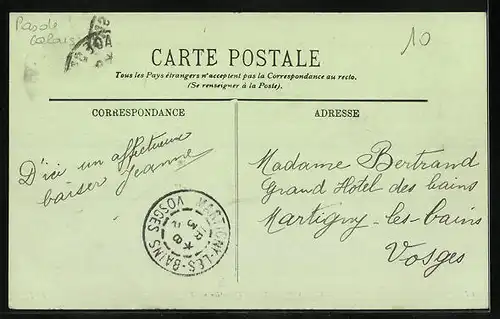 Pas de
Calais
10
CARTE POSTALE
Tous les Pays étrangers n'acceptent pas la Correspondance au recto.
(Se renseigner à la Poste).
CORRESPONDANCE
D'ici un affectueux
baiser Jeanne
ADRESSE
Madame Bertrand
Grand Hotel des bains
Martigny-les-bains
Vosges
MARTIGNY-LES-BAINS
VOSGES